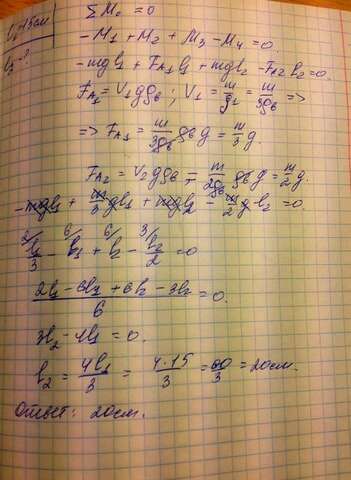 l₁=15см
l₂-?
ΣM₀ = 0
-M₁ + M₂ + M₃ - M₄ = 0.
-mgl₁ + F_A₁l₁ + mgl₂ - F_A₂l₂ = 0.
F_A₁ = V₁gρ_в ; V₁ = m/ρ₁ = m/3ρ_в =>
=> F_A₁ = m/3ρ_в ρ_в g = m/3 g.
F_A₂ = V₂gρ_в = m/2ρ_в ρ_в g = m/2 g.
-mgl₁ + m/3 gl₁ + mgl₂ - m/2 gl₂ = 0
l₁/3 - l₁ + l₂ - l₂/2 = 0
2l₁ - 6l₁ + 6l₂ - 3l₂ / 6 = 0.
3l₂ - 4l₁ = 0.
l₂ = 4l₁/3 = 4·15/3 = 60/3 = 20см.
Ответ: 20см.